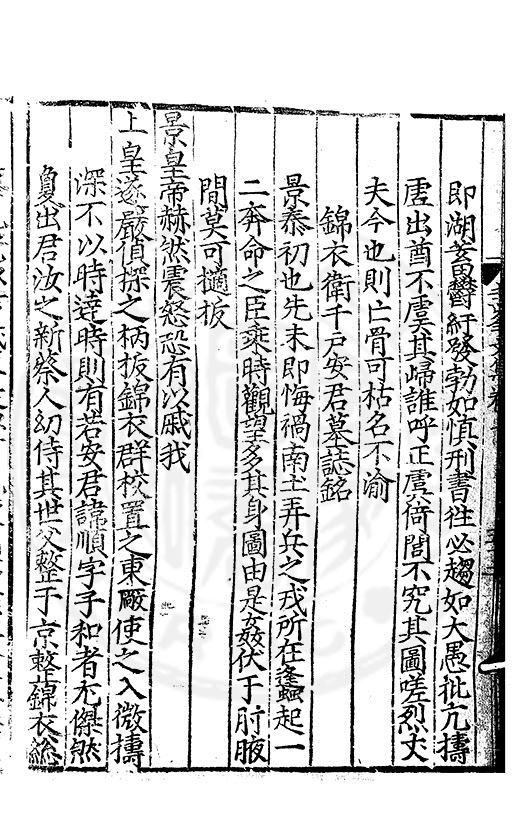 即湖蓄鬱紆發勃如慎刑書往必趨如大愚批亢擣
虛出酋不虞其歸誰呼正虞倚閭不究其圖嗟烈丈
夫今也則亡骨可枯名不渝
錦衣衛千戶安君墓誌銘
景泰初也先未即悔禍南土弄兵之戎所在蠭起一
二奔命之臣乘時觀望多其身圖由是姦伏于肘腋
間莫可擿抜
景皇帝赫然震怒恐有以戚我
上皇遂嚴偵探之柄抜錦衣群校置之東廠使之入微擣
深不以時達時則有若安君諱順字子和者尤傑然
敻出君汝之新蔡人幼侍其世父整于京整錦衣總